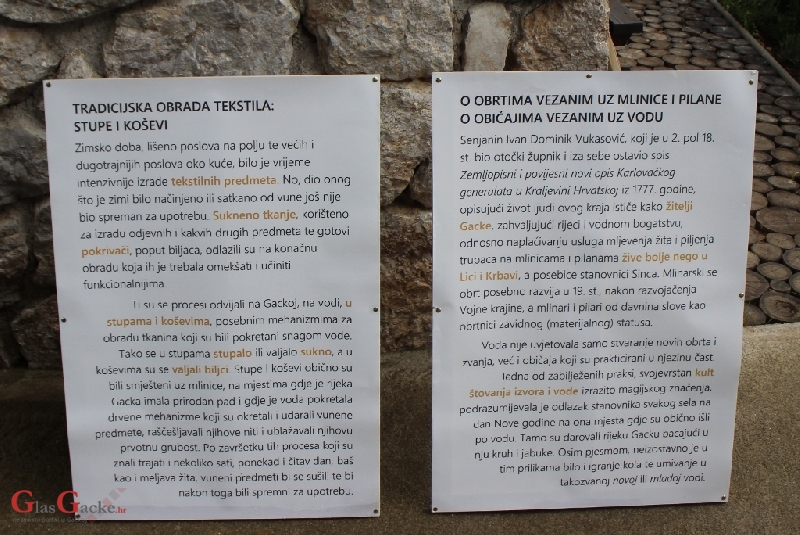 TRADICIJSKA OBRADA TEKSTILA:
STUPE I KOŠEVI
Zimsko doba, lišeno poslova na polju te većih i
dugotrajnijih poslova oko kuće, bilo je vrijeme
intenzivnije izrade tekstilnih predmeta. No, dio onog
što je zimi bilo načinjeno ili satkano od vune još nije
bio spreman za upotrebu. Sukneno tkanje, korišteno
za izradu odjevnih i kakvih drugih predmeta te gotovi
pokrivači, poput biljaca, odlazili su na konačnu
obradu koja ih je trebala omekšati i učiniti
funkcionalnijima.
Ti su se procesi odvijali na Gackoj, na vodi, u
stupama i koševima, posebnim mehanizmima za
obradu tkanina koji su bili pokretani snagom vode.
Tako se u stupama stupalo ili valjalo sukno, a u
koševima su se valjali biljci. Stupe i koševi obično su
bili smješteni uz mlinice, na mjestima gdje je rijeka
Gacka imala prirodan pad i gdje je voda pokretala
drvene mehanizme koji su okretali i udarali vunene
predmete, raščešljavali njihove niti i ublažavali njihovu
prvotnu grubost. Po završetku tih procesa koji su
znali trajati i nekoliko sati, ponekad i čitav dan, baš
kao i meljava žita, vuneni predmeti bi se sušili te bi
nakon toga bili spremni za upotrebu.
O OBRTIMA VEZANIM UZ MLINICE I PILANE
O OBIČAJIMA VEZANIM UZ VODU
Senjanin Ivan Dominik Vukasović, koji je u 2. pol 18.
st. bio otočki župnik i iza sebe ostavio spis
Zemljopisni i povijesni novi opis Karlovačkog
generalata u Kraljevini Hrvatskoj iz 1777. godine,
opisujući život ljudi ovog kraja ističe kako žitelji
Gacke, zahvaljujući rijeci i vodnom bogatstvu,
odnosno naplaćivanju usluga mljevenja žita i piljenja
trupaca na mlinicama i pilanama žive bolje nego u
Lici i Krbavi, a posebice stanovnici Sinca. Mlinarski se
obrt posebno razvija u 19. st. nakon razvojačenja
Vojne krajine, a mlinari i pilari od davnina slove kao
nositelji zavidnog (materijalnog) statusa.
Voda nije uvjetovala samo stvaranje novih obrta i
zvanja, već i običaja koji su prakticirani u njezinu čast.
Jedna od zabilježenih praksi, svojevrstan kult
štovanja izvora i vode izrazito magijskog značenja,
podrazumijevala je odlazak stanovnika svakog sela na
dan Nove godine na ona mjesta gdje su obično išli
po vodu. Tamo su darovali rijeku Gacku bacajući u
nju kruh i jabuke. Osim pjesmom, neizostavno je u
tim prilikama bilo i igranje kola te umivanje u
takozvanoj novoj ili mladoj vodi.
GlasGacke.hr